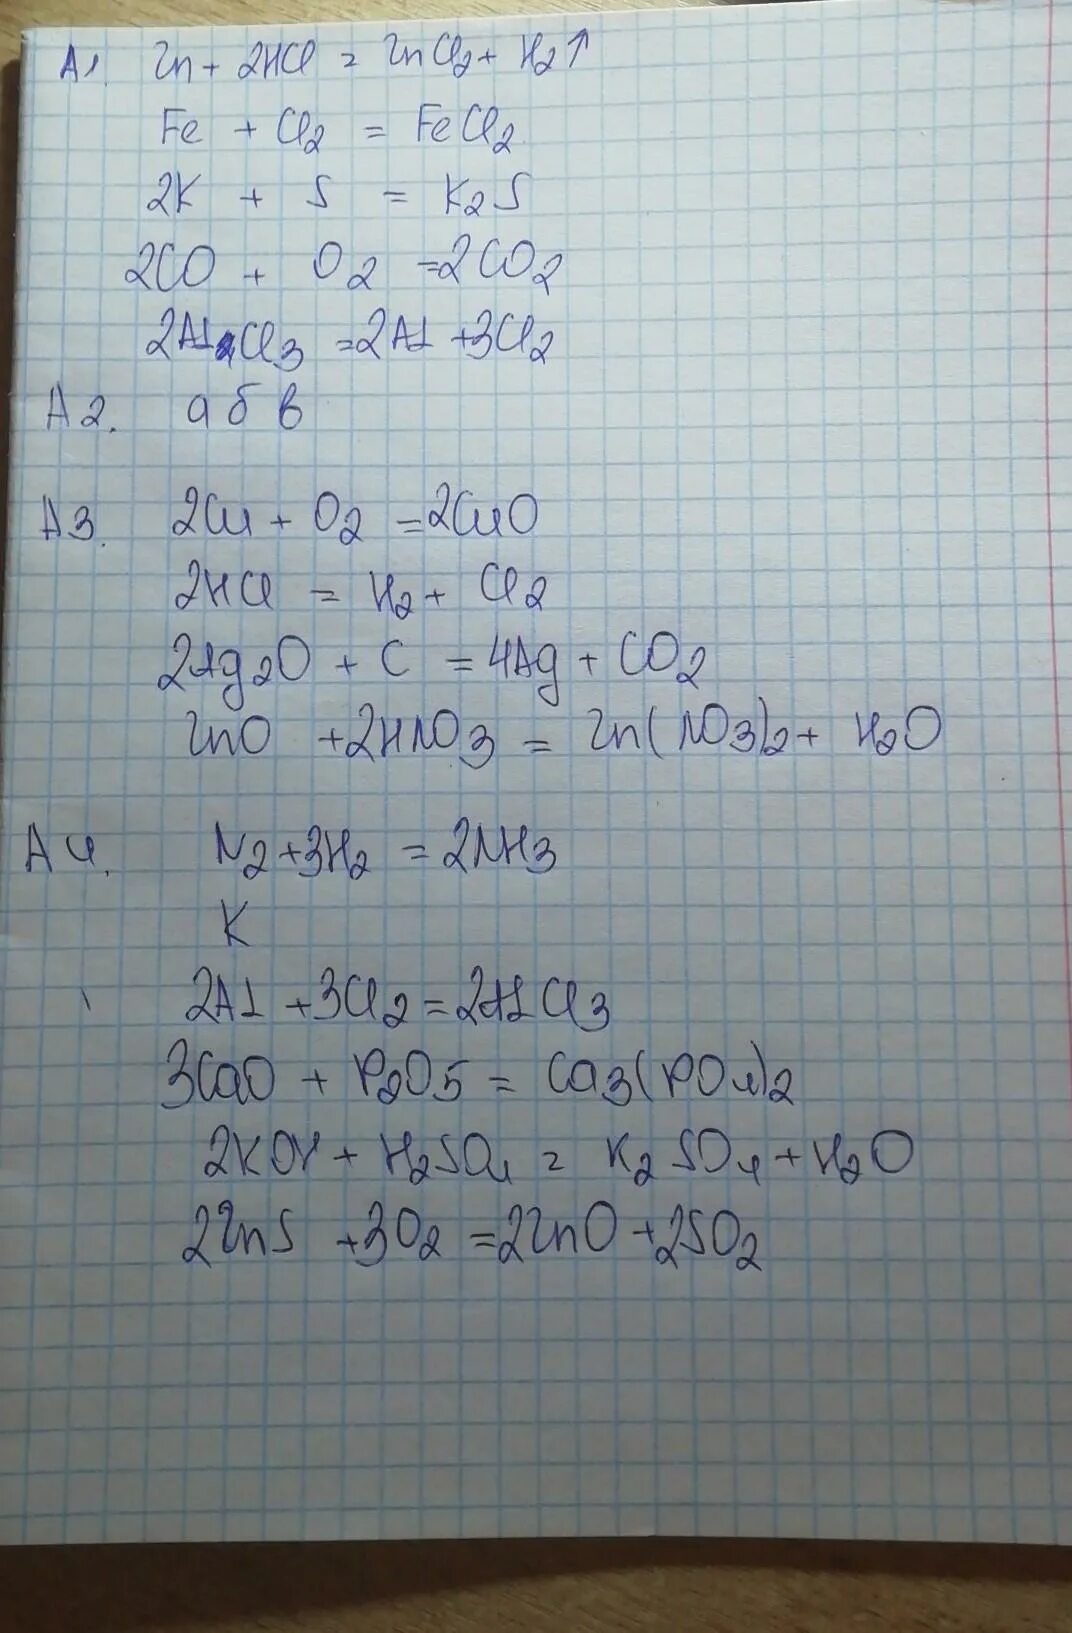 А1. Zn + 2HCl = ZnCl2 + H2↑
Fe + Cl2 = FeCl2
2K + S = K2S
2CO + O2 = 2CO2
2AlCl3 = 2Al + 3Cl2
А2. а б в
А3. 2Cu + O2 = 2CuO
2HCl = H2 + Cl2
2Ag2O + C = 4Ag + CO2
ZnO + 2HNO3 = Zn(NO3)2 + H2O
А4. N2 + 3H2 = 2NH3
K
2Al + 3Cl2 = 2AlCl3
3CaO + P2O5 = Ca3(PO4)2
2KOH + H2SO4 = K2SO4 + H2O
2ZnS + 3O2 = 2ZnO + 2SO2